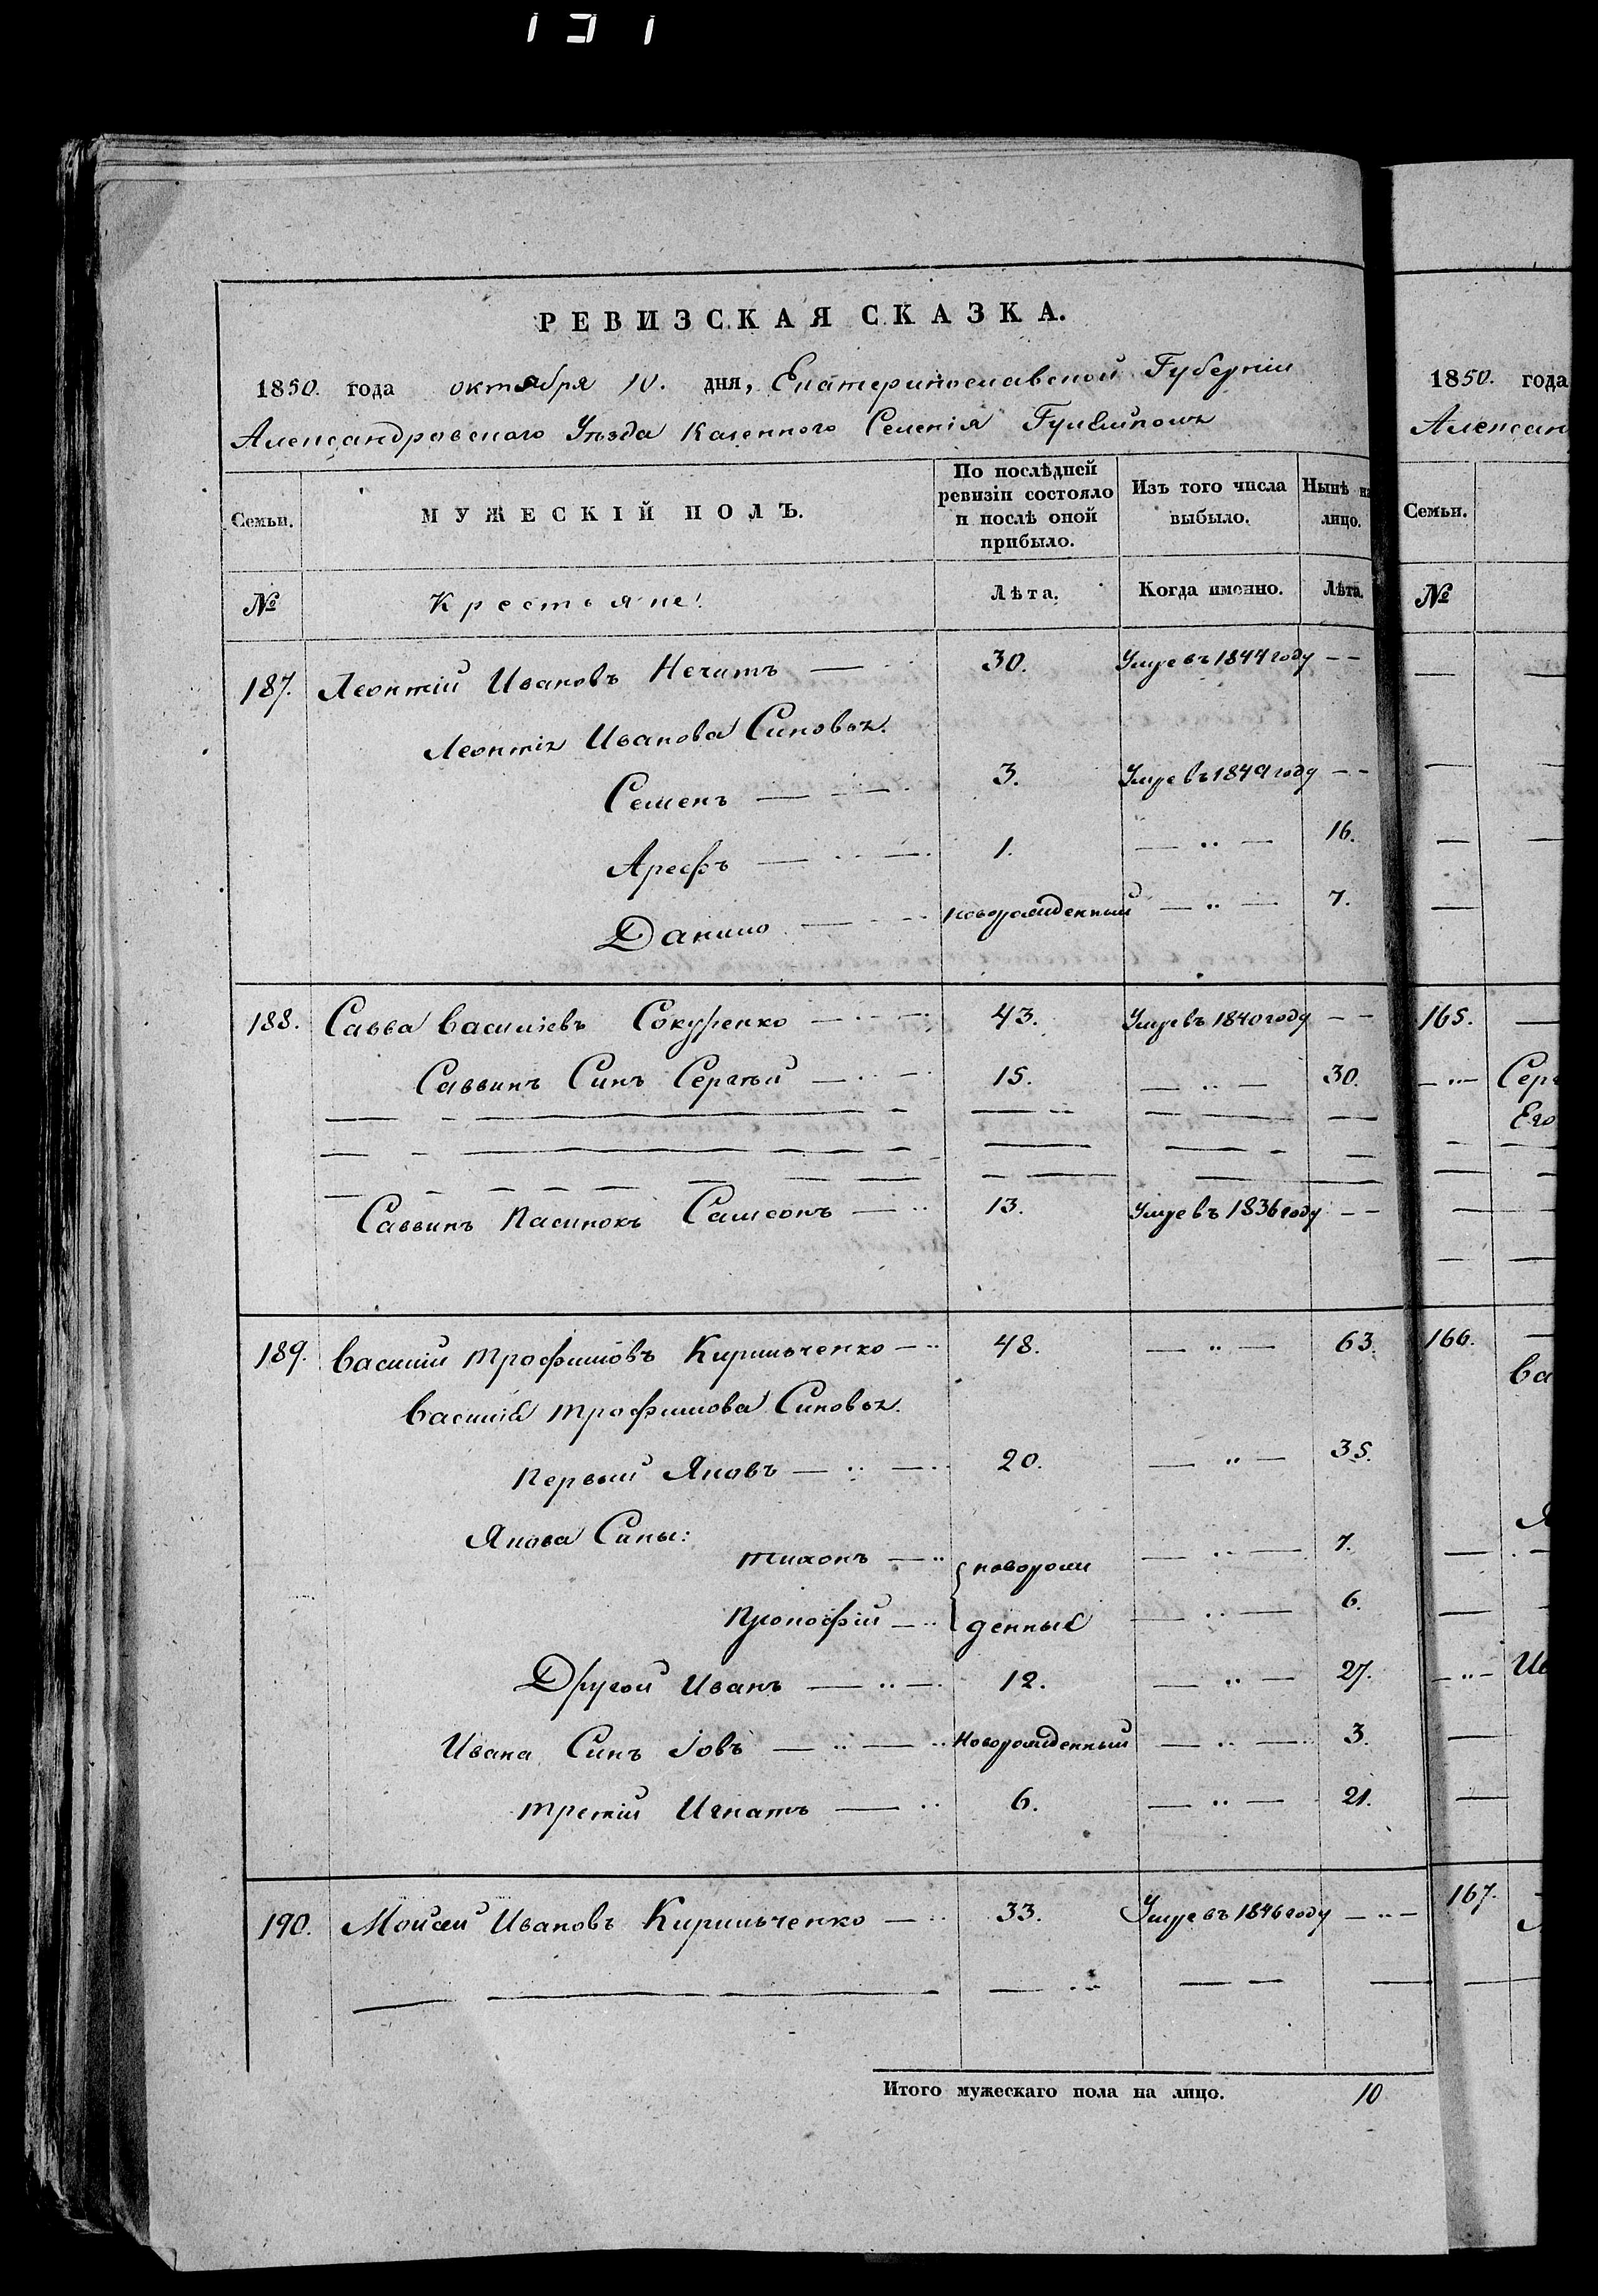 131
РЕВИЗСКАЯ СКАЗКА.
1850. года октября 10. дня, Екатеринославской Губерніи
Александровского Уѣзда Казенного Селенія
Семьи. МУЖЕСКІЙ ПОЛЪ. По послѣдней ревизіи состояло и послѣ оной прибыло. Изъ того числа выбыло. Нынѣ на лицо.
№ Крестьяне! Лѣта. Когда именно. Лѣта.
187. Леонтій Ивановъ Нечитъ — 30. Умре въ 1844 году — —
Леонтія Иванова Синовья.
Семенъ — 3. Умре въ 1849 году — —
Арефъ — 1. — „ — 16.
Данило — новорожденный — „ — 7.
188. Савва Василіевъ Сокуренко — 43. Умре въ 1840 году — —
Саввинъ Синъ Сергѣй — 15. — „ — 30.
Саввинъ Пасинокъ Самсонъ — 13. Умре въ 1836 году — —
189. Василій Трофимовъ Кирильченко — 48. — „ — 63.
Василія Трофимова Синовья.
Первый Яковъ — 20. — „ — 35.
Якова Сины:
Тихонъ — новорож — „ — 7.
Прокофій — денныя — „ — 6.
Другой Иванъ — 12. — „ — 27.
Ивана Синъ Іовъ — Новорожденный — „ — 3.
Третій Игнатъ — 6. — „ — 21.
190. Моисей Ивановъ Кирильченко — 33. Умре въ 1846 году — „ —
Итого мужескаго пола на лицо. 10
1850. года
Алексан
Семьи.
№
165.
Серг
Его
166.
Ва
Я
Ив
167.